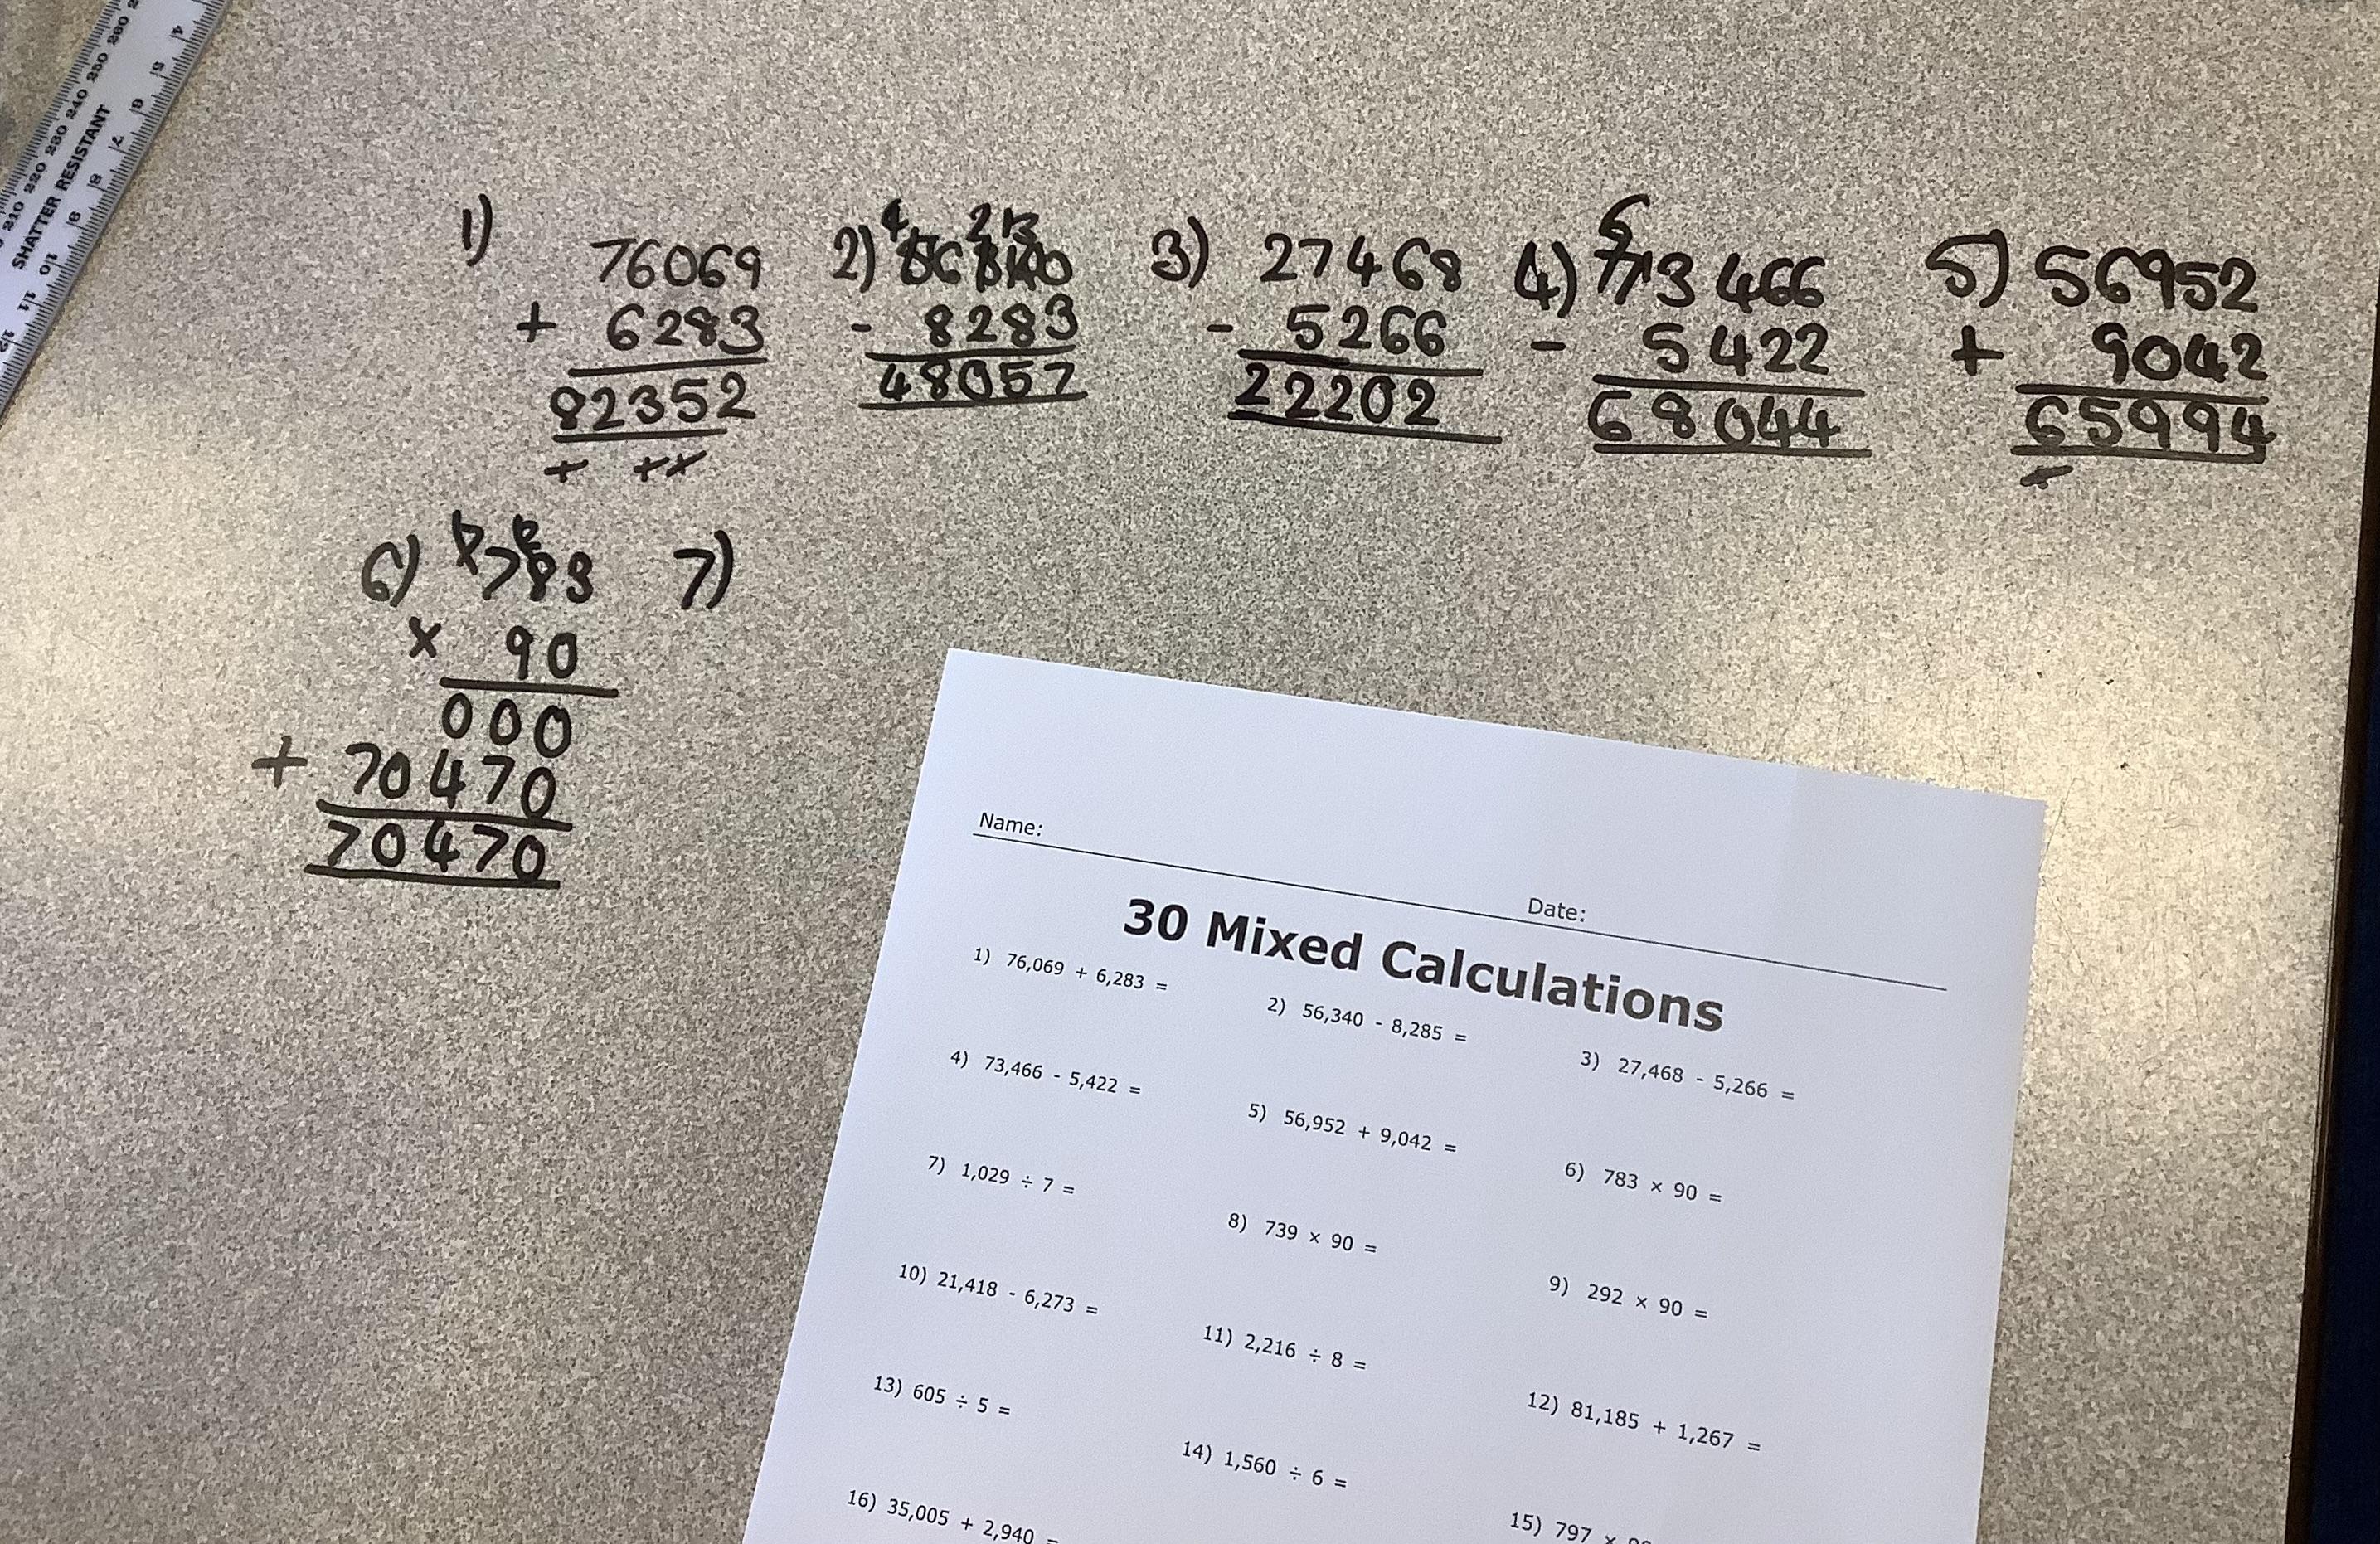 210 220 230 240 250 260
SHATTER RESISTANT
4 5 6 7 8 9 10 11 12
1) 76069
+ 6283
82352
2) 56340
- 8283
48057
3) 27468
- 5266
22202
4) 73466
- 5422
68044
5) 56952
+ 9042
65994
6) 783
× 90
000
+ 70470
70470
7)
Name:
Date:
30 Mixed Calculations
1) 76,069 + 6,283 =
2) 56,340 - 8,285 =
3) 27,468 - 5,266 =
4) 73,466 - 5,422 =
5) 56,952 + 9,042 =
6) 783 × 90 =
7) 1,029 ÷ 7 =
8) 739 × 90 =
9) 292 × 90 =
10) 21,418 - 6,273 =
11) 2,216 ÷ 8 =
12) 81,185 + 1,267 =
13) 605 ÷ 5 =
14) 1,560 ÷ 6 =
15) 797 ×
16) 35,005 + 2,940 =